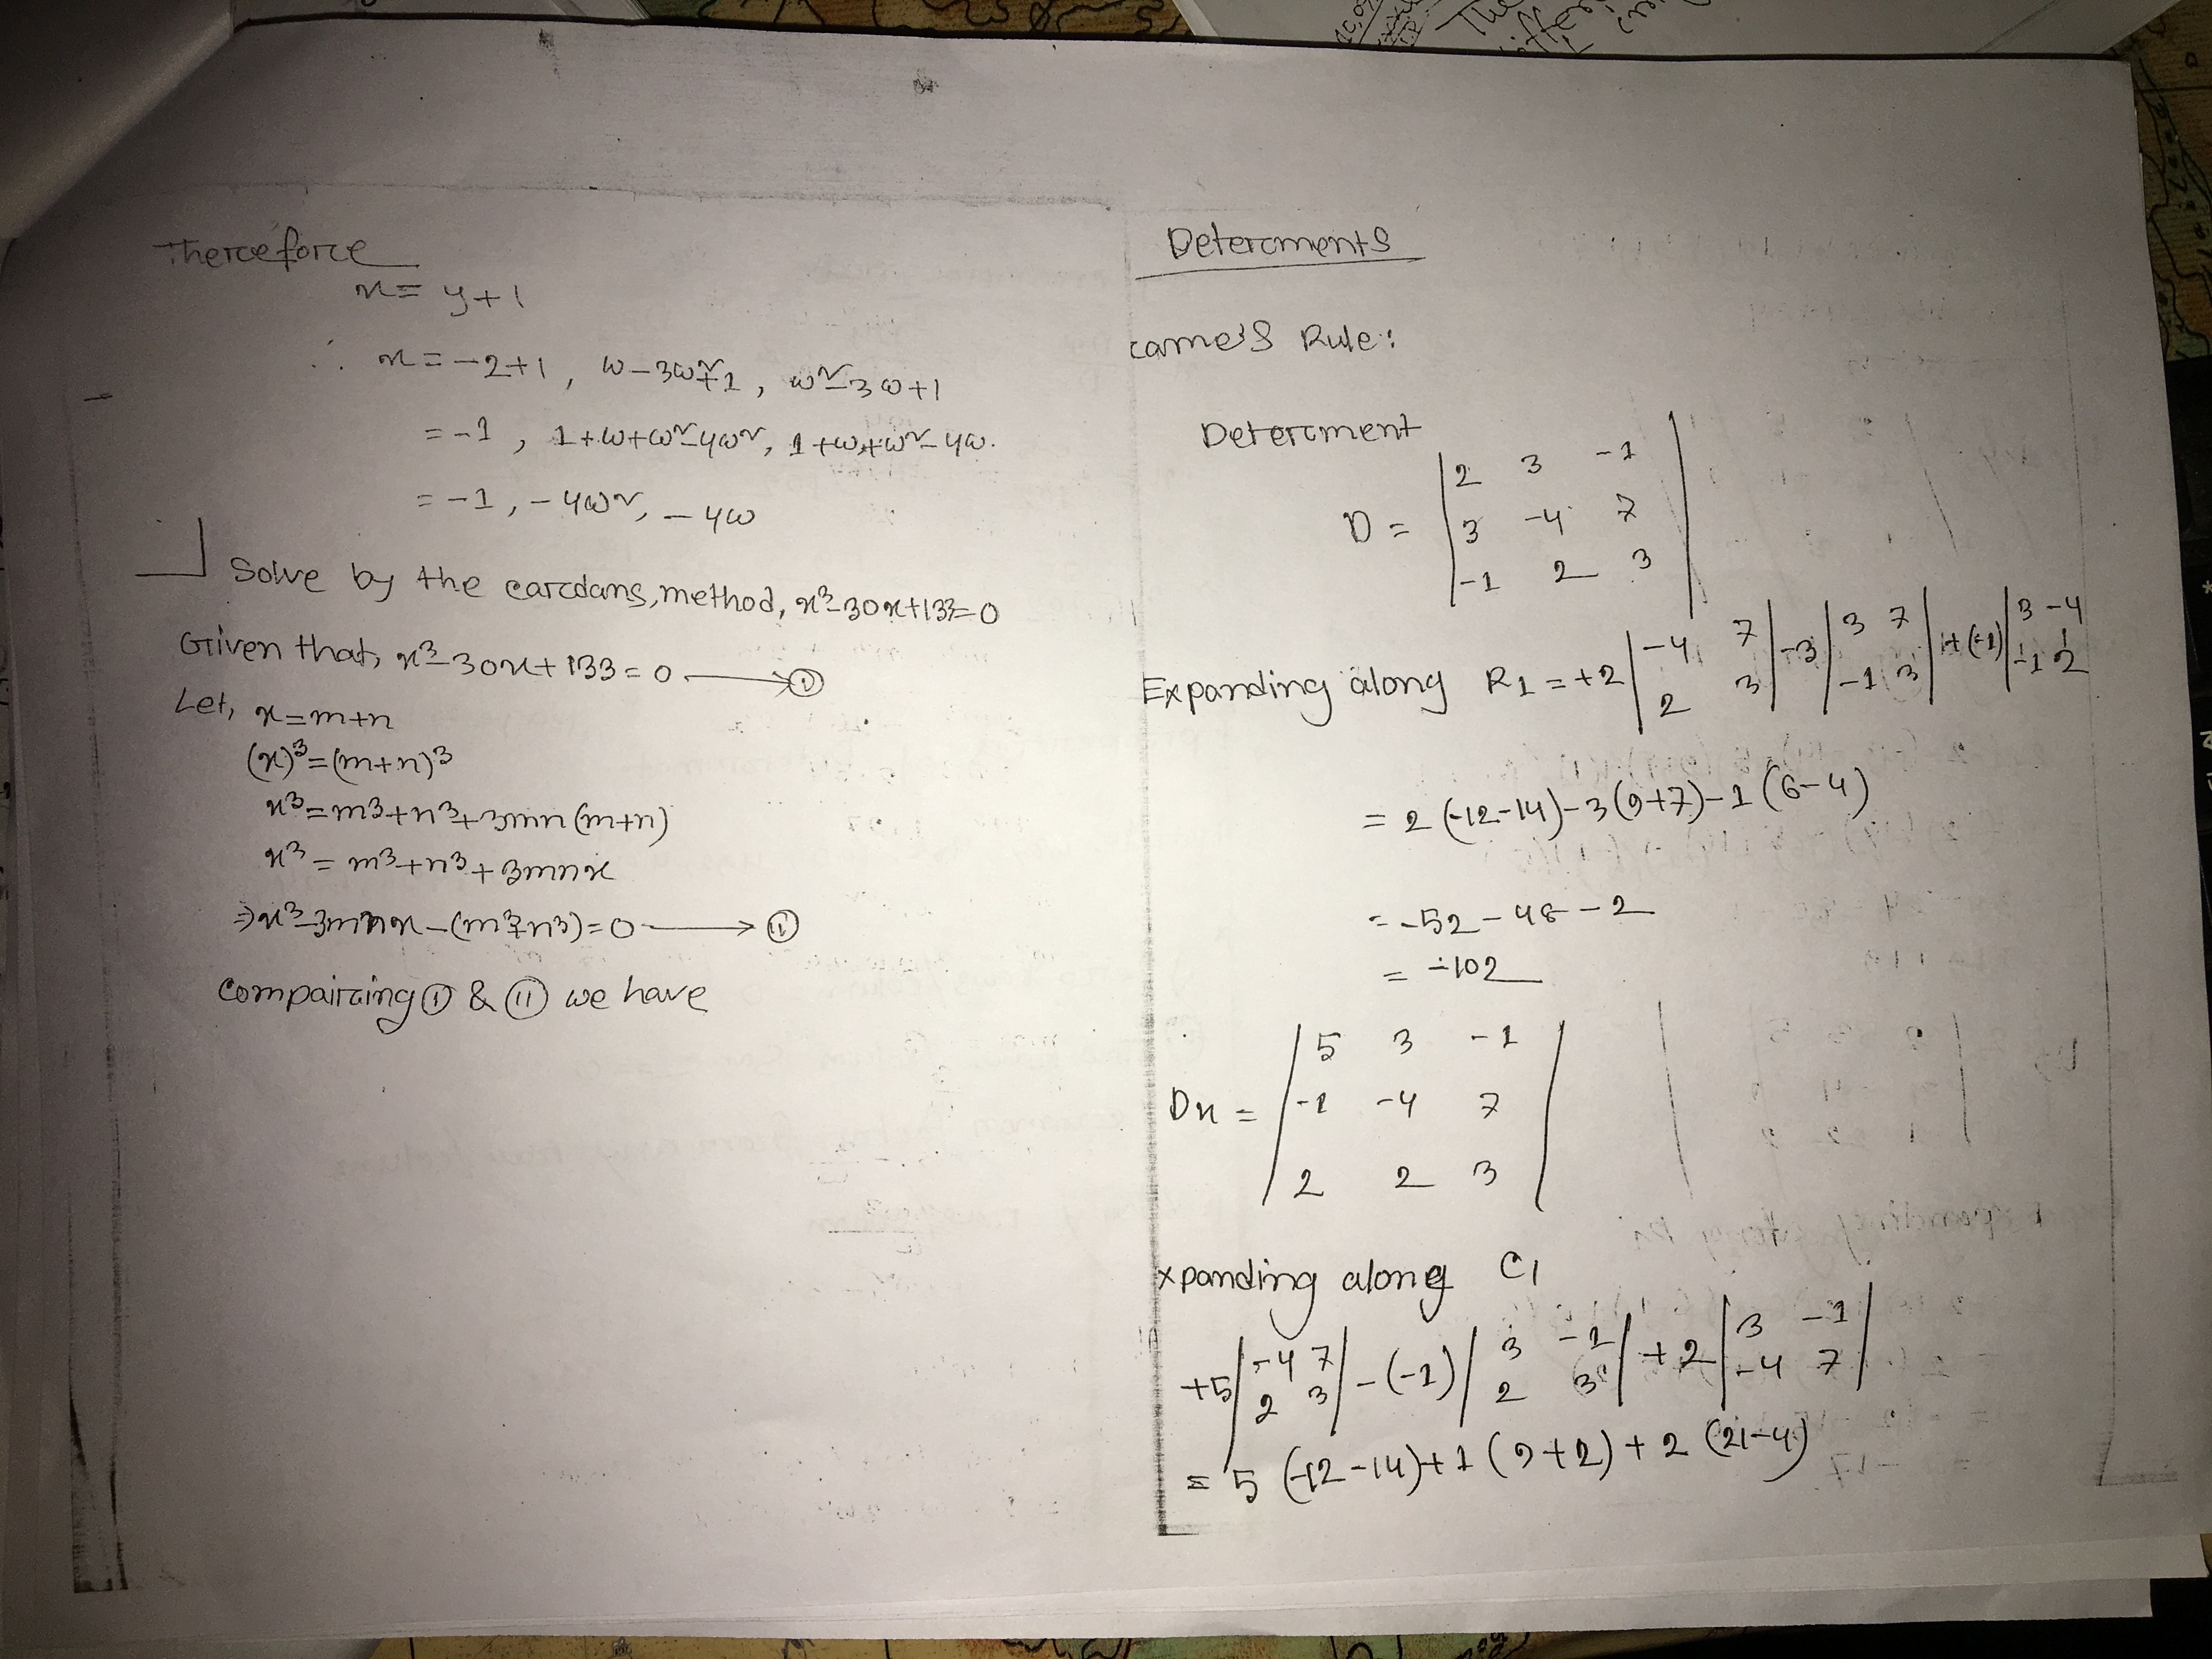 Therceforce
x = y+1
∴ x = -2+1, ω-3ω²+1, ω²-3ω+1
= -1, 1+ω+ω²-4ω², 1+ω+ω²-4ω.
= -1, -4ω², -4ω
Solve by the carcdans, method, x³-30x+133=0
Given that, x³-30x+133=0 → (i)
Let, x=m+n
(x)³=(m+n)³
x³=m³+n³+3mn(m+n)
x³=m³+n³+3mnx
⇒x³-3mnx-(m³+n³)=0 → (ii)
Compaircing (i) & (ii) we have
Detercments
came's Rule:
Detercment
D = | 2 3 -1 |
| 3 -4 7 |
| -1 2 3 |
Expanding along R1 = +2 | -4 7 | -3 | 3 7 | + (-1) | 3 -4 |
| 2 3 | | -1 3 | | -1 2 |
= 2 (-12-14)-3(9+7)-1(6-4)
= -52-48-2
= -102
Dx = | 5 3 -1 |
| -1 -4 7 |
| 2 2 3 |
xpanding along C1
+5 | -4 7 | -(-1) | 3 -1 | +2 | 3 -1 |
| 2 3 | | 2 3 | | -4 7 |
= 5 (-12-14)+1(9+2)+2(21-4)